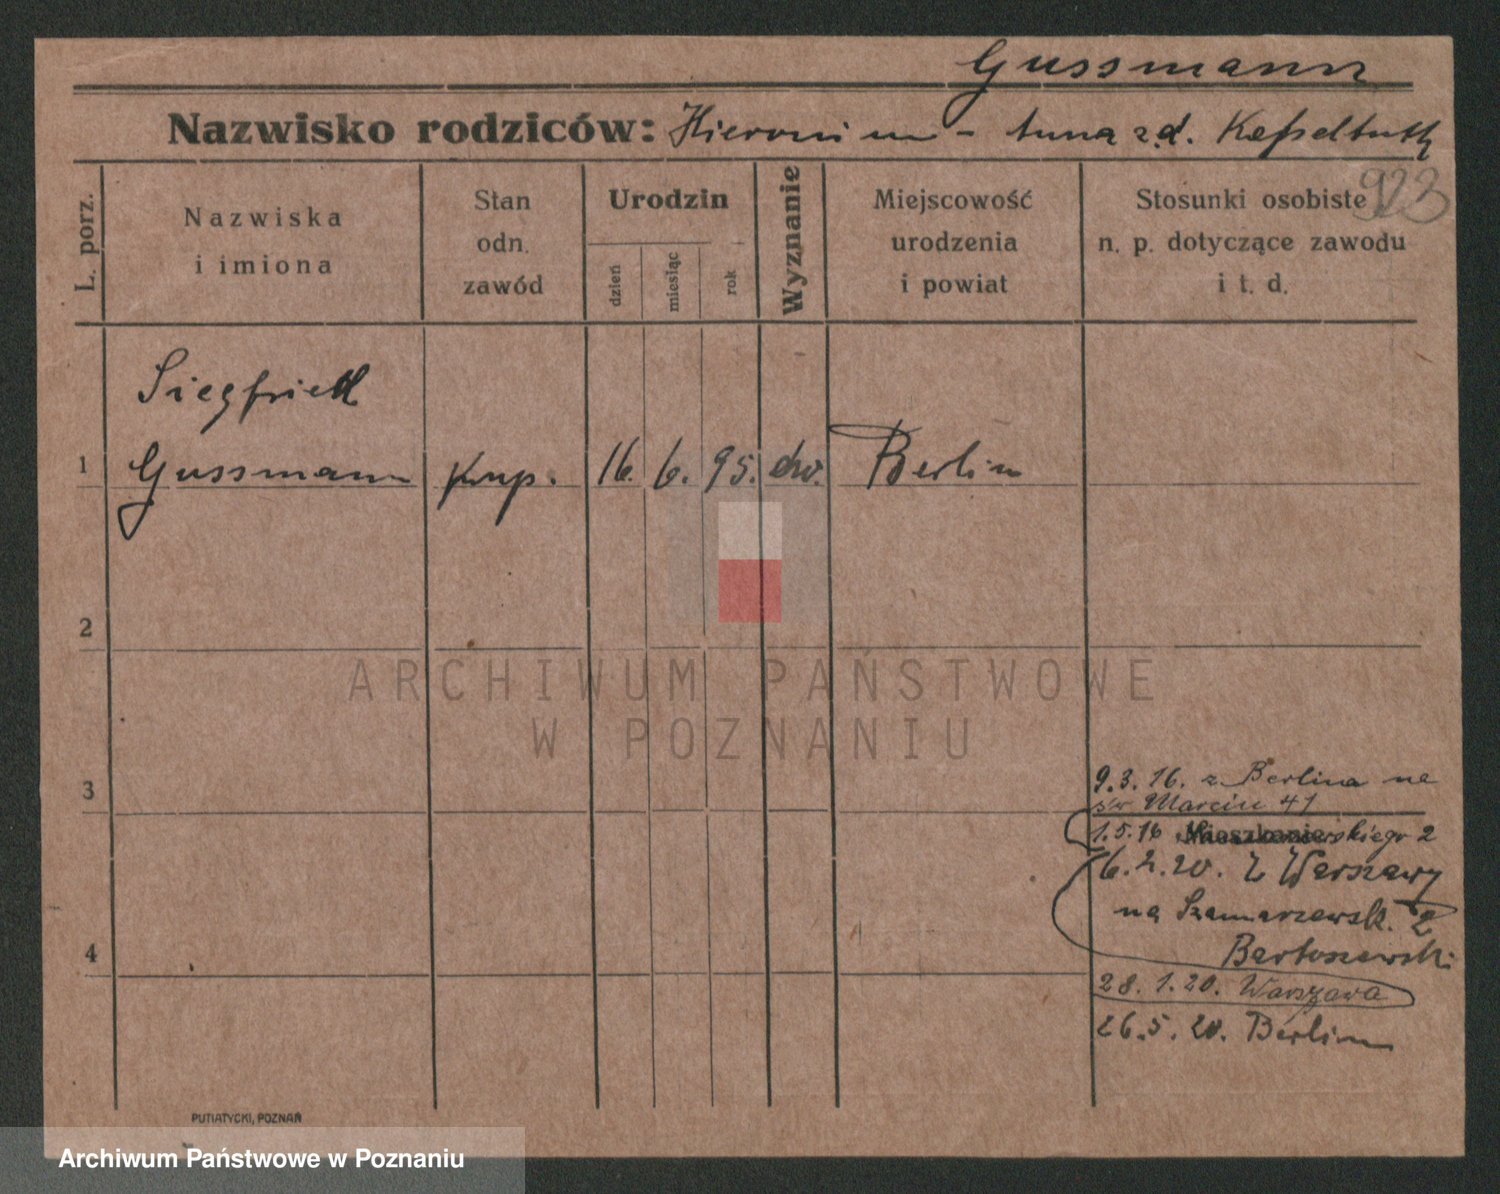 Gussmann
Nazwisko rodziców: Hieronim - Anna z.d.
923
L. porz.
Nazwiska
i imiona
Stan
odn.
zawód
Urodzin
dzień
miesiąc
rok
Wyznanie
Miejscowość
urodzenia
i powiat
Stosunki osobiste
n. p. dotyczące zawodu
i t. d.
Siegfried
1 Gussmann kup. 16. 6. 95. ew. Berlin
2
ARCHIWUM PAŃSTWOWE
W POZNANIU
3
9.3.16. z Berlina na
św Marcin 41
1.5.16 2
6.2.20. Z Warszawy
na Szamarzewsk. 2
Bartoszewski
4
28.1.20. Warszawa
26.5.20. Berlin
PUTIATYCKI, POZNAŃ
Archiwum Państwowe w Poznaniu